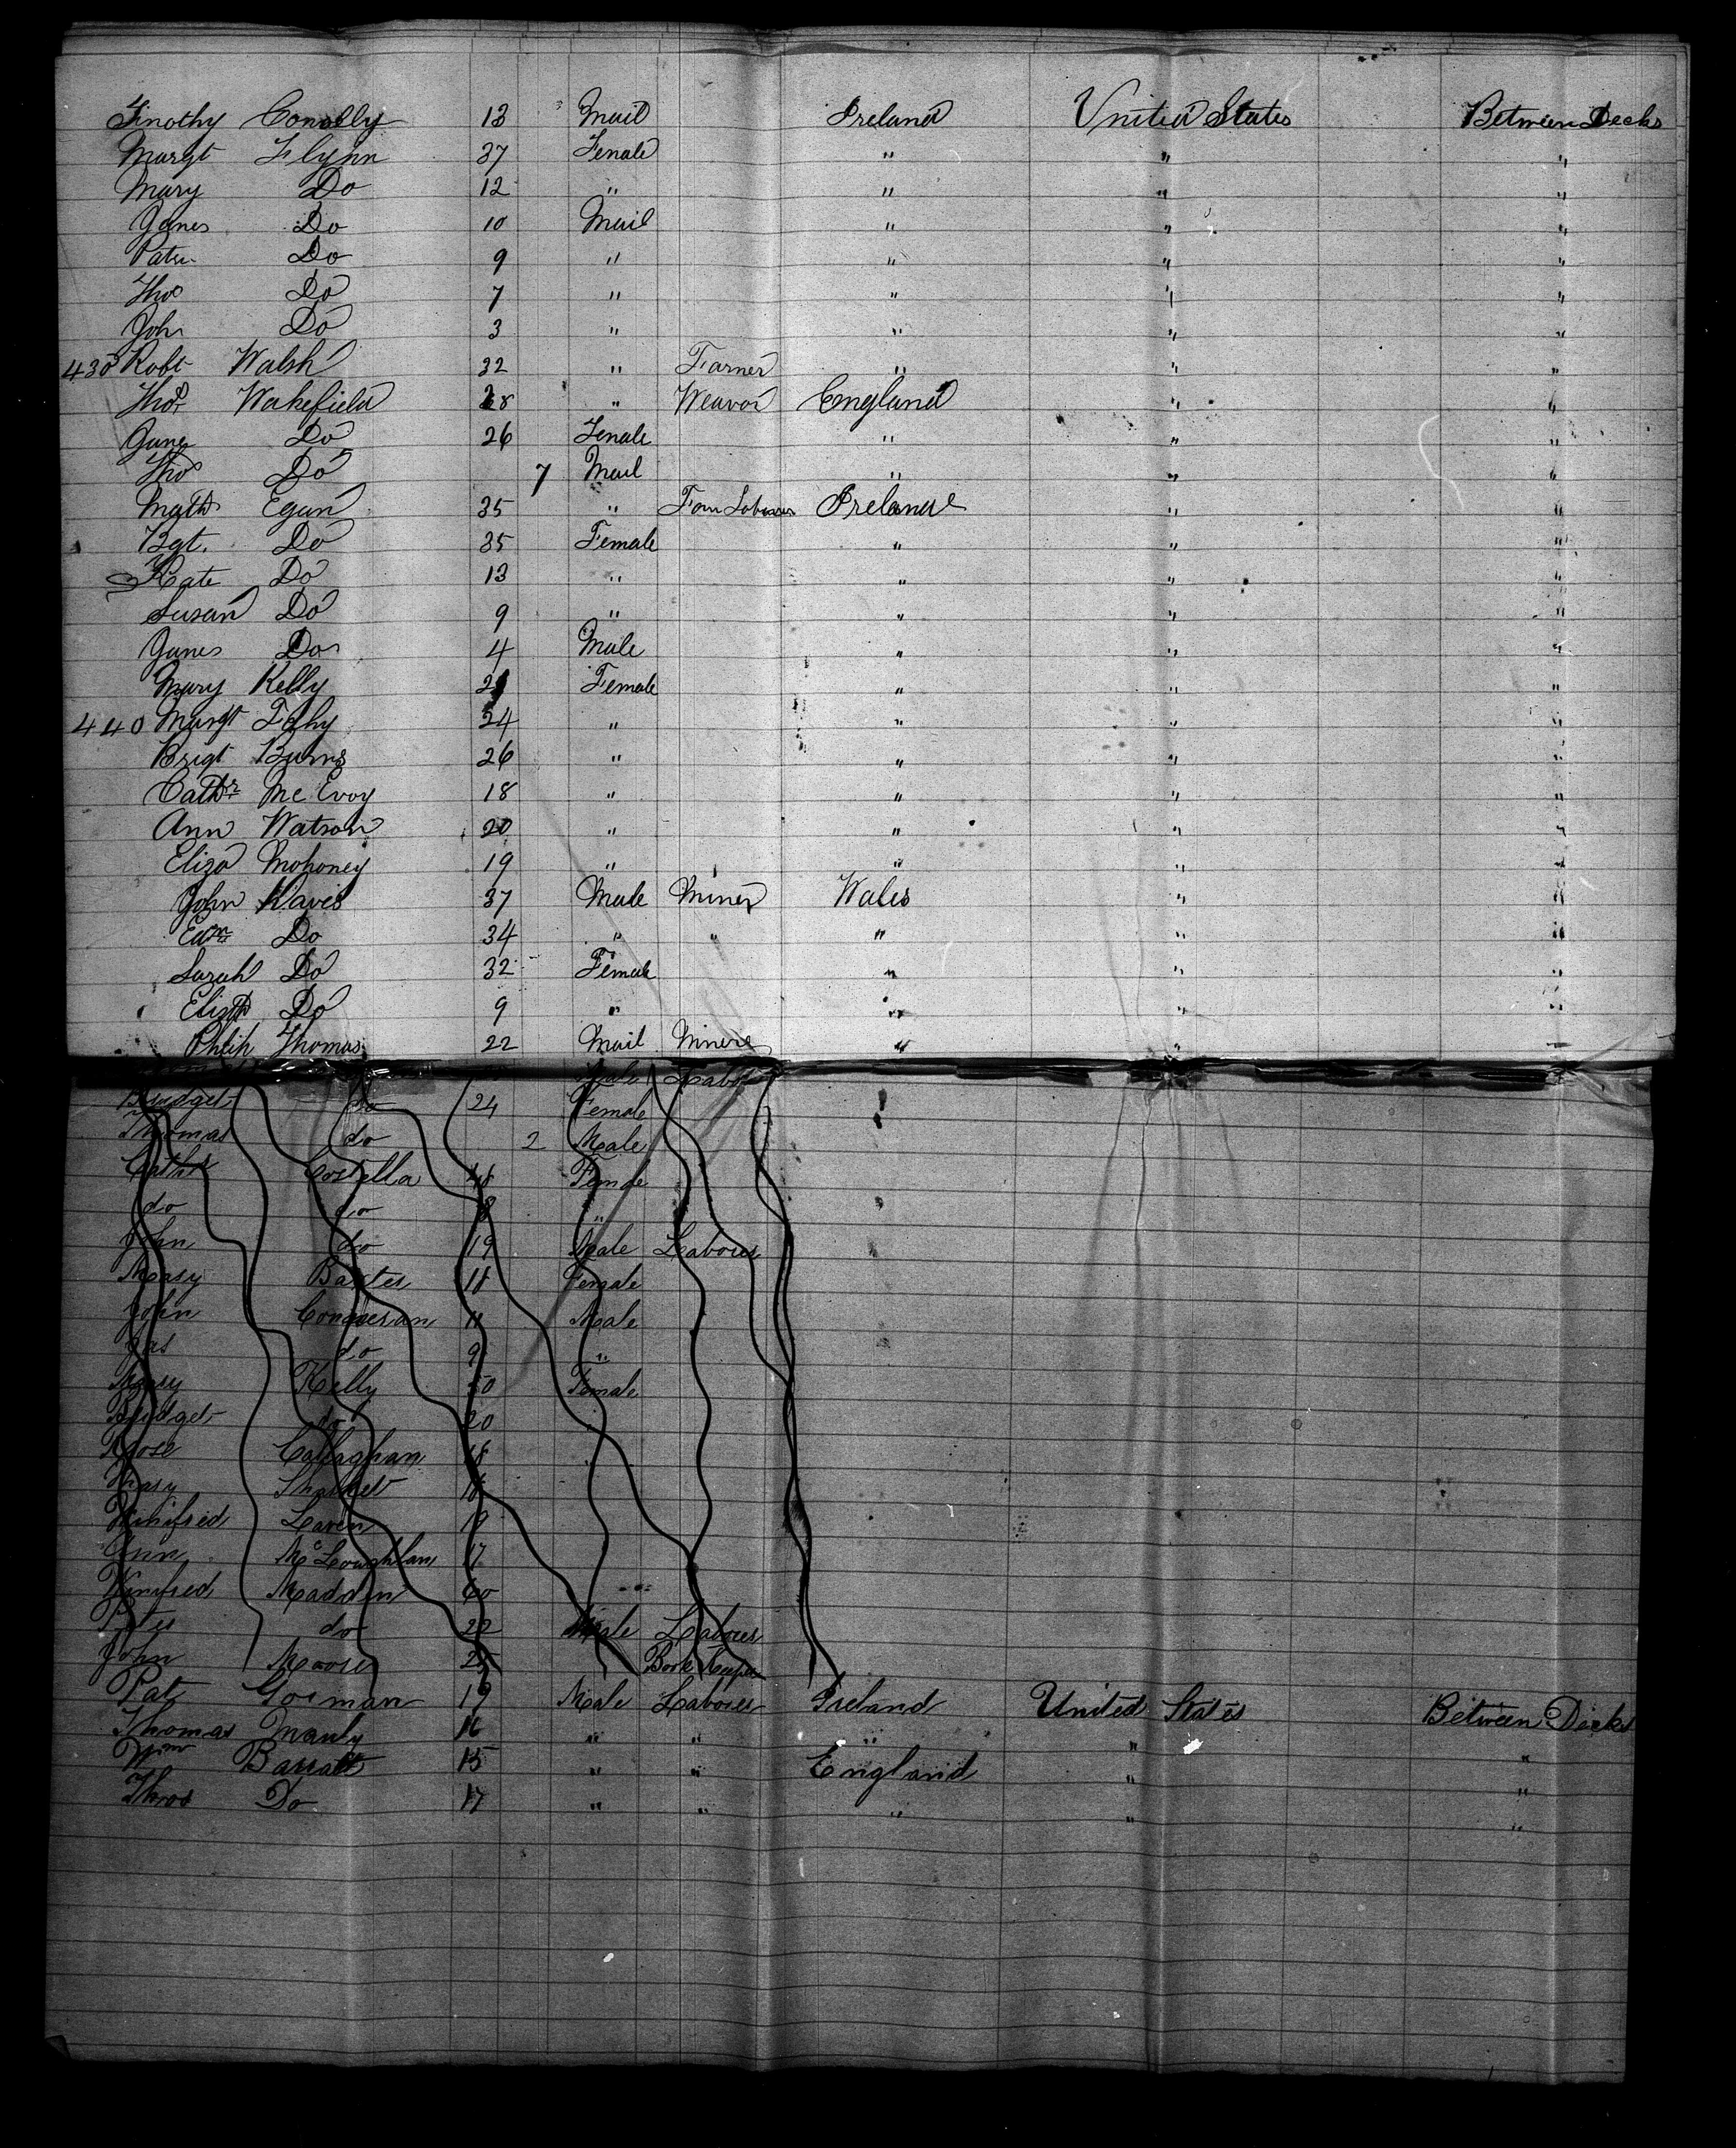 Timothy Conolly 13 Mail Ireland United States Between Decks
Margt Flynn 37 Female " " "
Mary Do 12 " " " "
James Do 10 Mail " " "
Do 9 " " " "
Thos Do 7 " " " "
John Do 3 " " " "
430 Robt Walsh 32 " Farmer " " "
Thos Wakefield 28 " Weavor England " "
Jane Do 26 Female " " "
Thos Do 7 Mail " " "
Egan 35 " Ireland " "
Bgt. Do 35 Female " " "
Kate Do 13 " " " "
Susan Do 9 " " " "
James Do 4 Male " " "
Mary Kelly 21 Female " " "
440 Margt Fahy 24 " " " "
Brigt Burns 26 " " " "
Cathr Mc Evoy 18 " " " "
Ann Watson 20 " " " "
Eliza Mohoney 19 " " " "
John Davis 37 Male Miner Wales " "
Do 34 " " " " "
Sarah Do 32 Female " " "
Elizth Do 9 " " " "
Philip Thomas 22 Mail Miner " " "
Male Labor
Bridget do 24 Female
Thomas do 2 Male
Cathe Costella 48 Female
do do "
John do 19 Male Labourer
Mary Baxter 18 Female
John 11 Male
Jas do 9 "
Mary Kelly 50 Female
Bridget do 20
Rose Callaghan 18
Mary
Winifred Laven 19
Ann McLoughlan 17
Winifred Madden 60
Peter do 22 Male Labourer
John Moore 25 Book Keeper
Pat Gorman 19 Male Laborer Ireland United States Between Decks
Thomas Manly 16 " " " " "
Wm Barratt 15 " " England " "
Thos Do 17 " " " " "